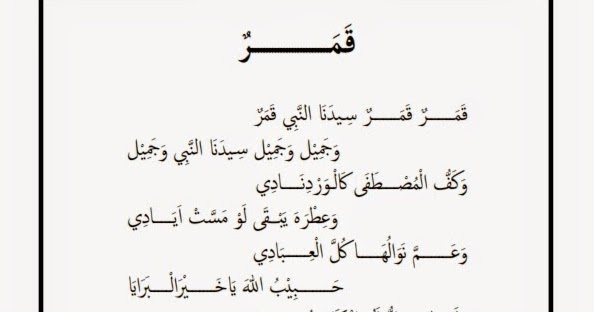 قَمَرٌ
قَمَرٌ قَمَرٌ سِيدَنَا النَّبِي قَمَرٌ
وَجَمِيْل وَجَمِيْل سِيدَنَا النَّبِي وَجَمِيْل
وَكَفُّ الْمُصْطَفَى كَالْوَرْدِنَادِي
وَعِطْرَهَ يَبْقَى لَوْ مَسَّتْ اَيَادِي
وَعَمَّ نَوَالُهَا كُلَّ الْعِبَادِي
حَبِيْبُ اللهَ يَاخَيْرَالْبَرَايَا